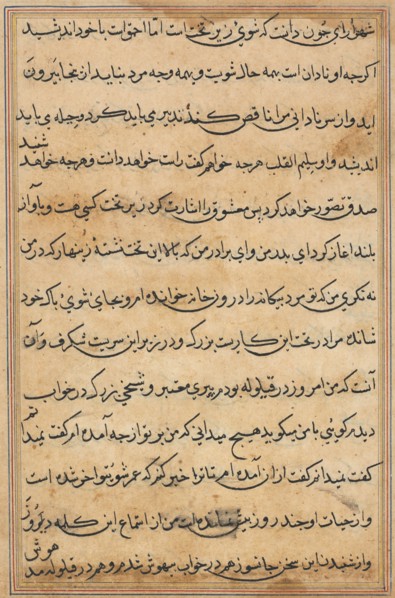 شهرآرای چون دانست که شوی زیر تخت است اما احوات با خود اندیشید
اکرچه او نادان است بهمه حال شویست و بهمه وجه مرد نباید از پنجا بیرون
اید و از سر نادانی مرا ناقص کند تدبیر می باید کرد و حیله می باید
اندیشید و او سلیم القلب هرچه خواهم کفت راست خواهد دانست و هرچه خواهد
صدق تصور خواهد کرد پس معشوق را اشارت کرد زیر تخت کسی هست و باواز
بلند اغاز کرد ای پدر من و ای برادر من که بالا این تخت نشستهٔ زنهار که در من
نه نکری من که تو مرد بیکانه را در روز خانه خوانده ام و بجای شوی پاک خود
شانده مرا در تحت این کار سریست بزرک و در زیر این سریت شکرف و آن
آنست که من امروز در قیلوله بودم پیری معتبر و شیخی بزرک در خواب
دیدم کویی با من میکوید هیچ میدانی که من بر تو از چه آمده ام کفتم نمیدانم
کفت از ان آمده ام تا ترا خبر کنم که عمر شوی تو اخر شده است
و از حیات او چند روز بیش نمانده است من از استماع این کلمه دلدوز
و از شنیدن این سخن جانسوز هم در خواب بیهوش شدم و هم در قیلوله مدهوش